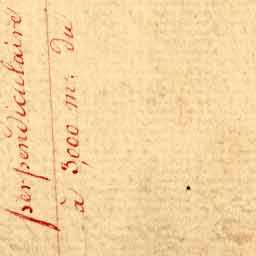 perpendiculaire
à 3,000 m. du